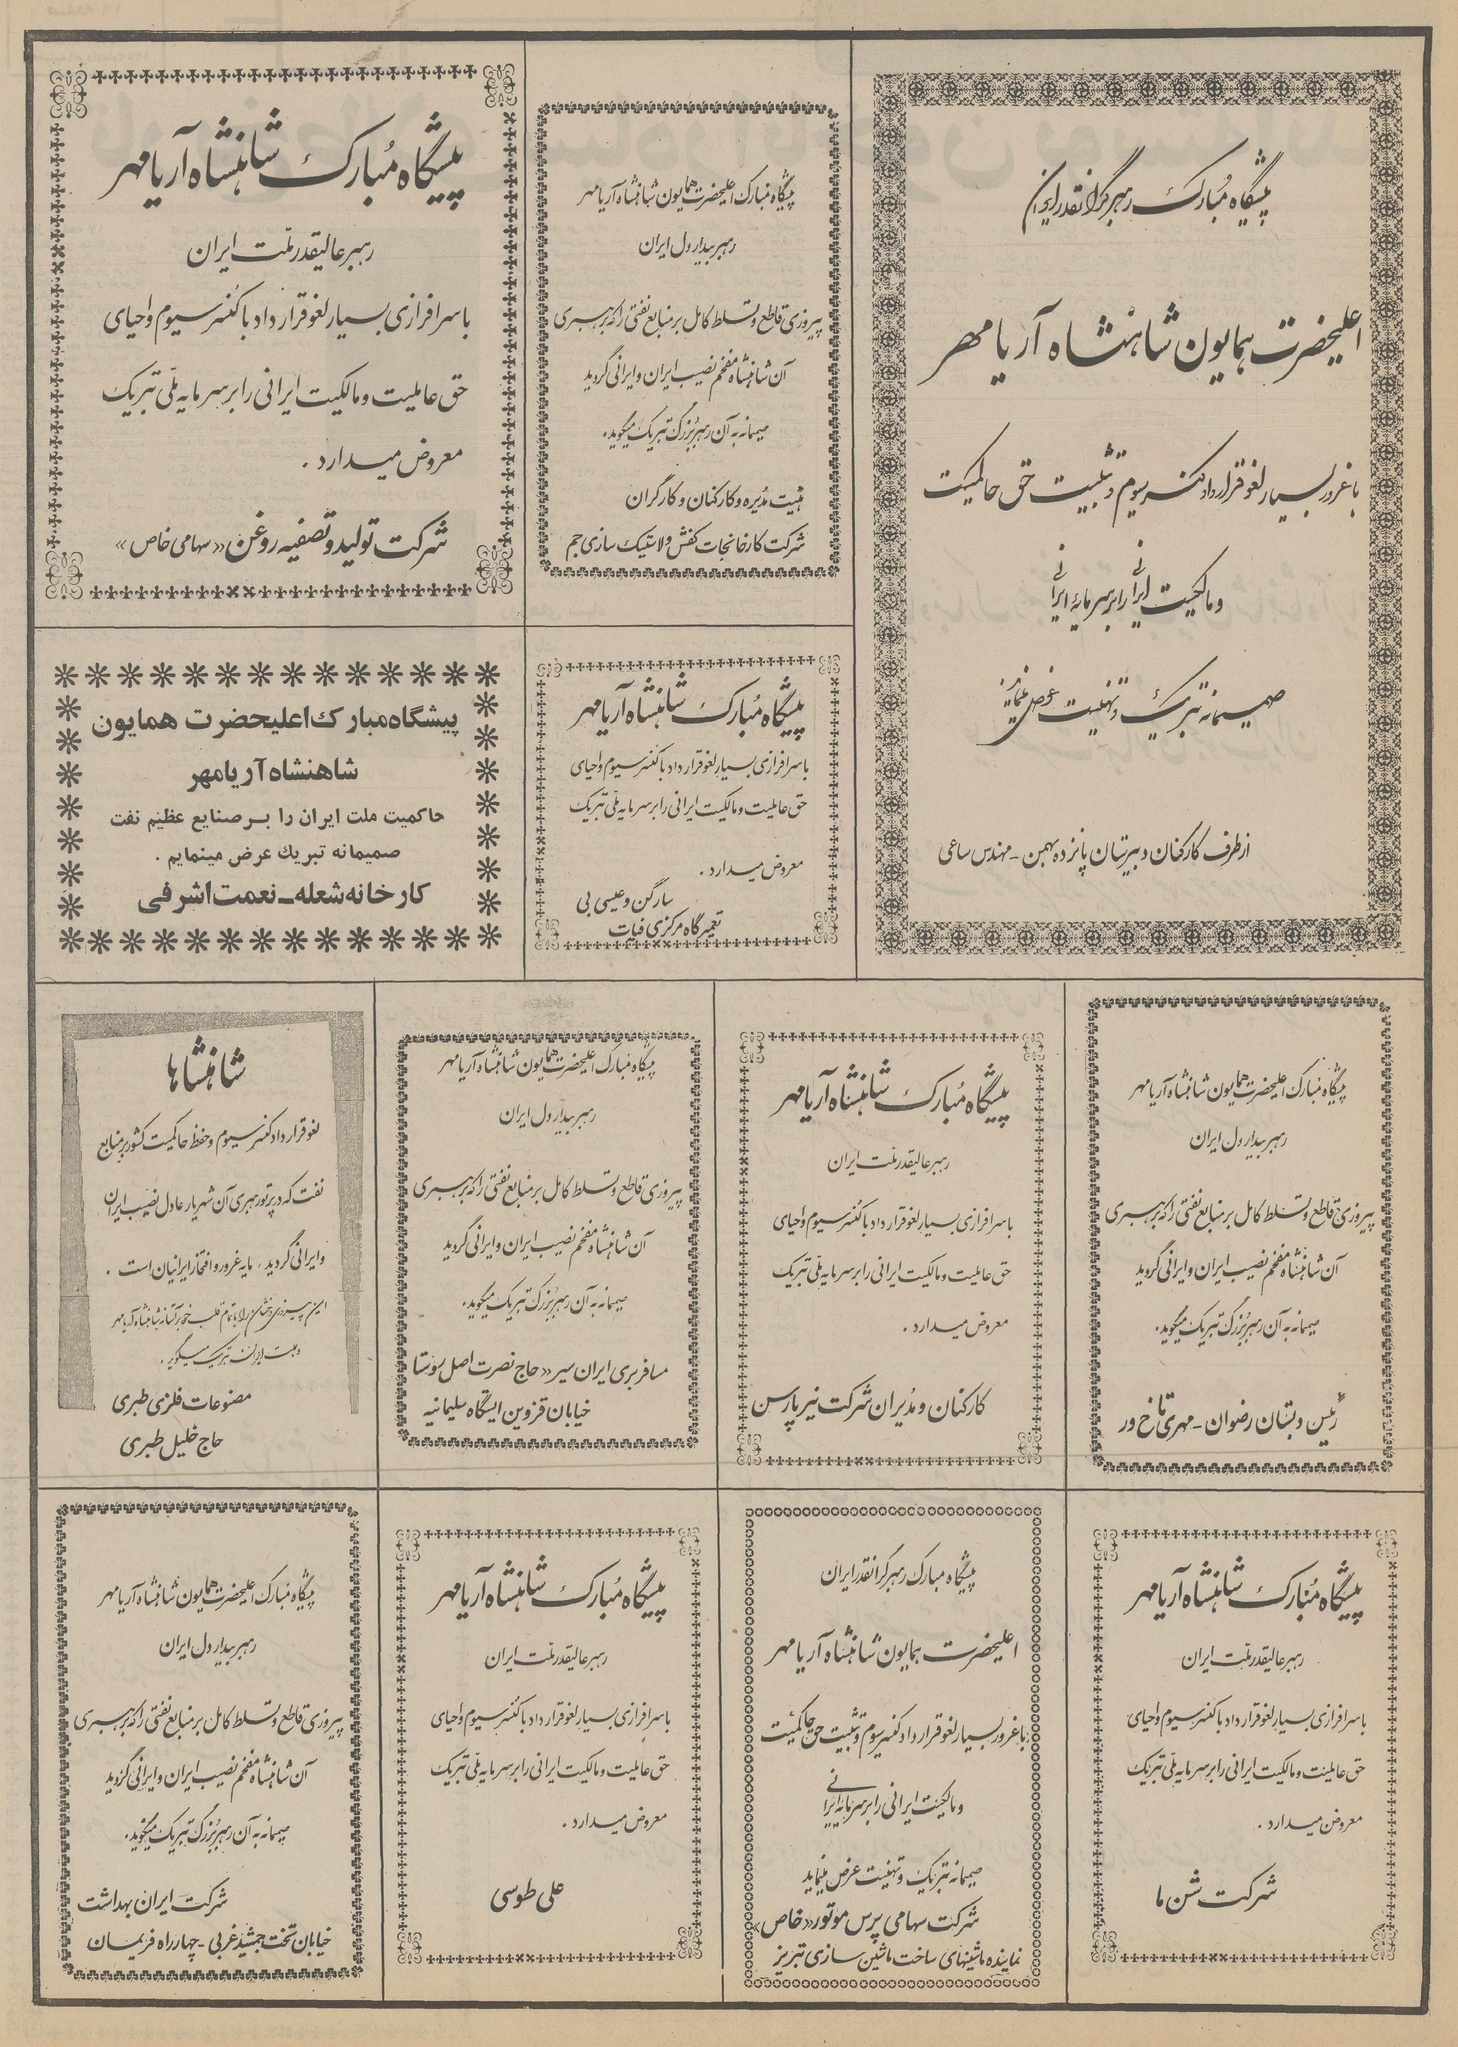 پیشگاه مبارک رهبر گرانقدر ایران
اعلیحضرت همایون شاهنشاه آریامهر
با غرور بسیار لغو قرارداد کنسرسیوم و تثبیت حق حاکمیت
و مالکیت ایرانی را بر سرمایهٔ ایرانی
صمیمانه تبریک و تهنیت عرض مینماید
از طرف کارکنان دبیرستان پانزده بهمن - مهندس ساعی
پیشگاه مبارک اعلیحضرت همایون شاهنشاه آریامهر
رهبر بیدار دل ایران
پیروزی قاطع و تسلط کامل بر منابع نفتی را که رهبری
آن شاهنشاه مفخم نصیب ایران و ایرانی گردید
صمیمانه به آن رهبر بزرگ تبریک میگوید.
هئیت مدیره و کارکنان و کارگران
شرکت کارخانجات کفش و لاستیک سازی جم
پیشگاه مبارک شاهنشاه آریامهر
رهبر عالیقدر ملت ایران
با سرافرازی بسیار لغو قرارداد با کنسرسیوم و احیای
حق عاملیت و مالکیت ایرانی را بر سرمایه ملی تبریک
معروض میدارد .
شرکت تولید و تصفیه روغن «سهامی خاص»
پیشگاه مبارک شاهنشاه آریامهر
با سرافرازی بسیار لغو قرارداد با کنسرسیوم و احیای
حق عاملیت و مالکیت ایرانی را بر سرمایه ملی تبریک
معروض میدارد .
سارگن و عیسی بی
تعمیرگاه مرکزی فیات
پیشگاه مبارک اعلیحضرت همایون
شاهنشاه آریامهر
حاکمیت ملت ایران را بر صنایع عظیم نفت
صمیمانه تبریک عرض مینمایم .
کارخانه شعله - نعمت اشرفی
پیشگاه مبارک اعلیحضرت همایون شاهنشاه آریامهر
رهبر بیدار دل ایران
پیروزی قاطع و تسلط کامل بر منابع نفتی را که رهبری
آن شاهنشاه مفخم نصیب ایران و ایرانی گردید
صمیمانه به آن رهبر بزرگ تبریک میگوید.
رئیس دبستان رضوان - مهری
پیشگاه مبارک شاهنشاه آریامهر
رهبر عالیقدر ملت ایران
با سرافرازی بسیار لغو قرارداد با کنسرسیوم و احیای
حق عاملیت و مالکیت ایرانی را بر سرمایه ملی تبریک
معروض میدارد .
کارکنان و مدیران شرکت نیرپارس
پیشگاه مبارک اعلیحضرت همایون شاهنشاه آریامهر
رهبر بیدار دل ایران
پیروزی قاطع و تسلط کامل بر منابع نفتی را که رهبری
آن شاهنشاه مفخم نصیب ایران و ایرانی گردید
صمیمانه به آن رهبر بزرگ تبریک میگوید.
مسافربری ایران سیر «حاج نصرت اصل روستا
خیابان قزوین ایستگاه سلیمانیه
شاهنشاها
لغو قرارداد کنسرسیوم و حفظ حاکمیت کشور بر منابع
نفت که در پرتو رهبری آن شهریار عادل نصیب ایران
و ایرانی گردید ، مایه غرور و افتخار ایرانیان است .
این پیروزی درخشان را با تمام قلب خود بر آستانه شاهنشاه آریامهر
و ملت ایران تبریک میگویم .
مصنوعات فلزی طبری
حاج خلیل طبری
پیشگاه مبارک شاهنشاه آریامهر
رهبر عالیقدر ملت ایران
با سرافرازی بسیار لغو قرارداد با کنسرسیوم و احیای
حق عاملیت و مالکیت ایرانی را بر سرمایه ملی تبریک
معروض میدارد .
شرکت شن ما
پیشگاه مبارک رهبر گرانقدر ایران
اعلیحضرت همایون شاهنشاه آریامهر
با غرور بسیار لغو قرارداد کنسرسیوم و تثبیت حق حاکمیت
و مالکیت ایرانی را بر سرمایه ایرانی
صمیمانه تبریک و تهنیت عرض مینماید
شرکت سهامی پرس موتور «خاص»
نماینده ماشینهای ساخت ماشین سازی تبریز
پیشگاه مبارک شاهنشاه آریامهر
رهبر عالیقدر ملت ایران
با سرافرازی بسیار لغو قرارداد با کنسرسیوم و احیای
حق عاملیت و مالکیت ایرانی را بر سرمایه ملی تبریک
معروض میدارد .
علی طوسی
پیشگاه مبارک اعلیحضرت همایون شاهنشاه آریامهر
رهبر بیدار دل ایران
پیروزی قاطع و تسلط کامل بر منابع نفتی را که رهبری
آن شاهنشاه مفخم نصیب ایران و ایرانی گردید
صمیمانه به آن رهبر بزرگ تبریک میگوید.
شرکت ایران بهداشت
خیابان تخت جمشید غربی - چهارراه فریمان